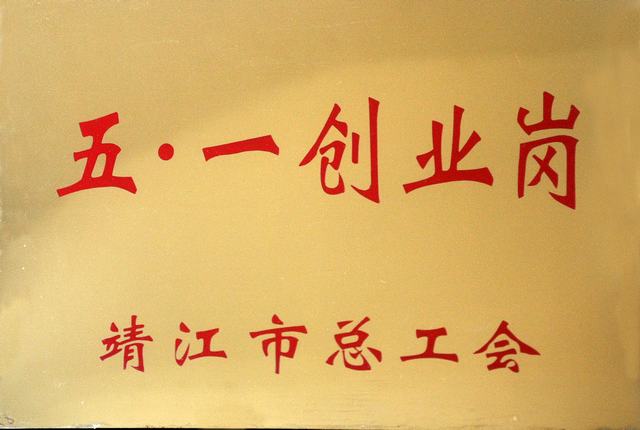 五·一创业岗
靖江市总工会